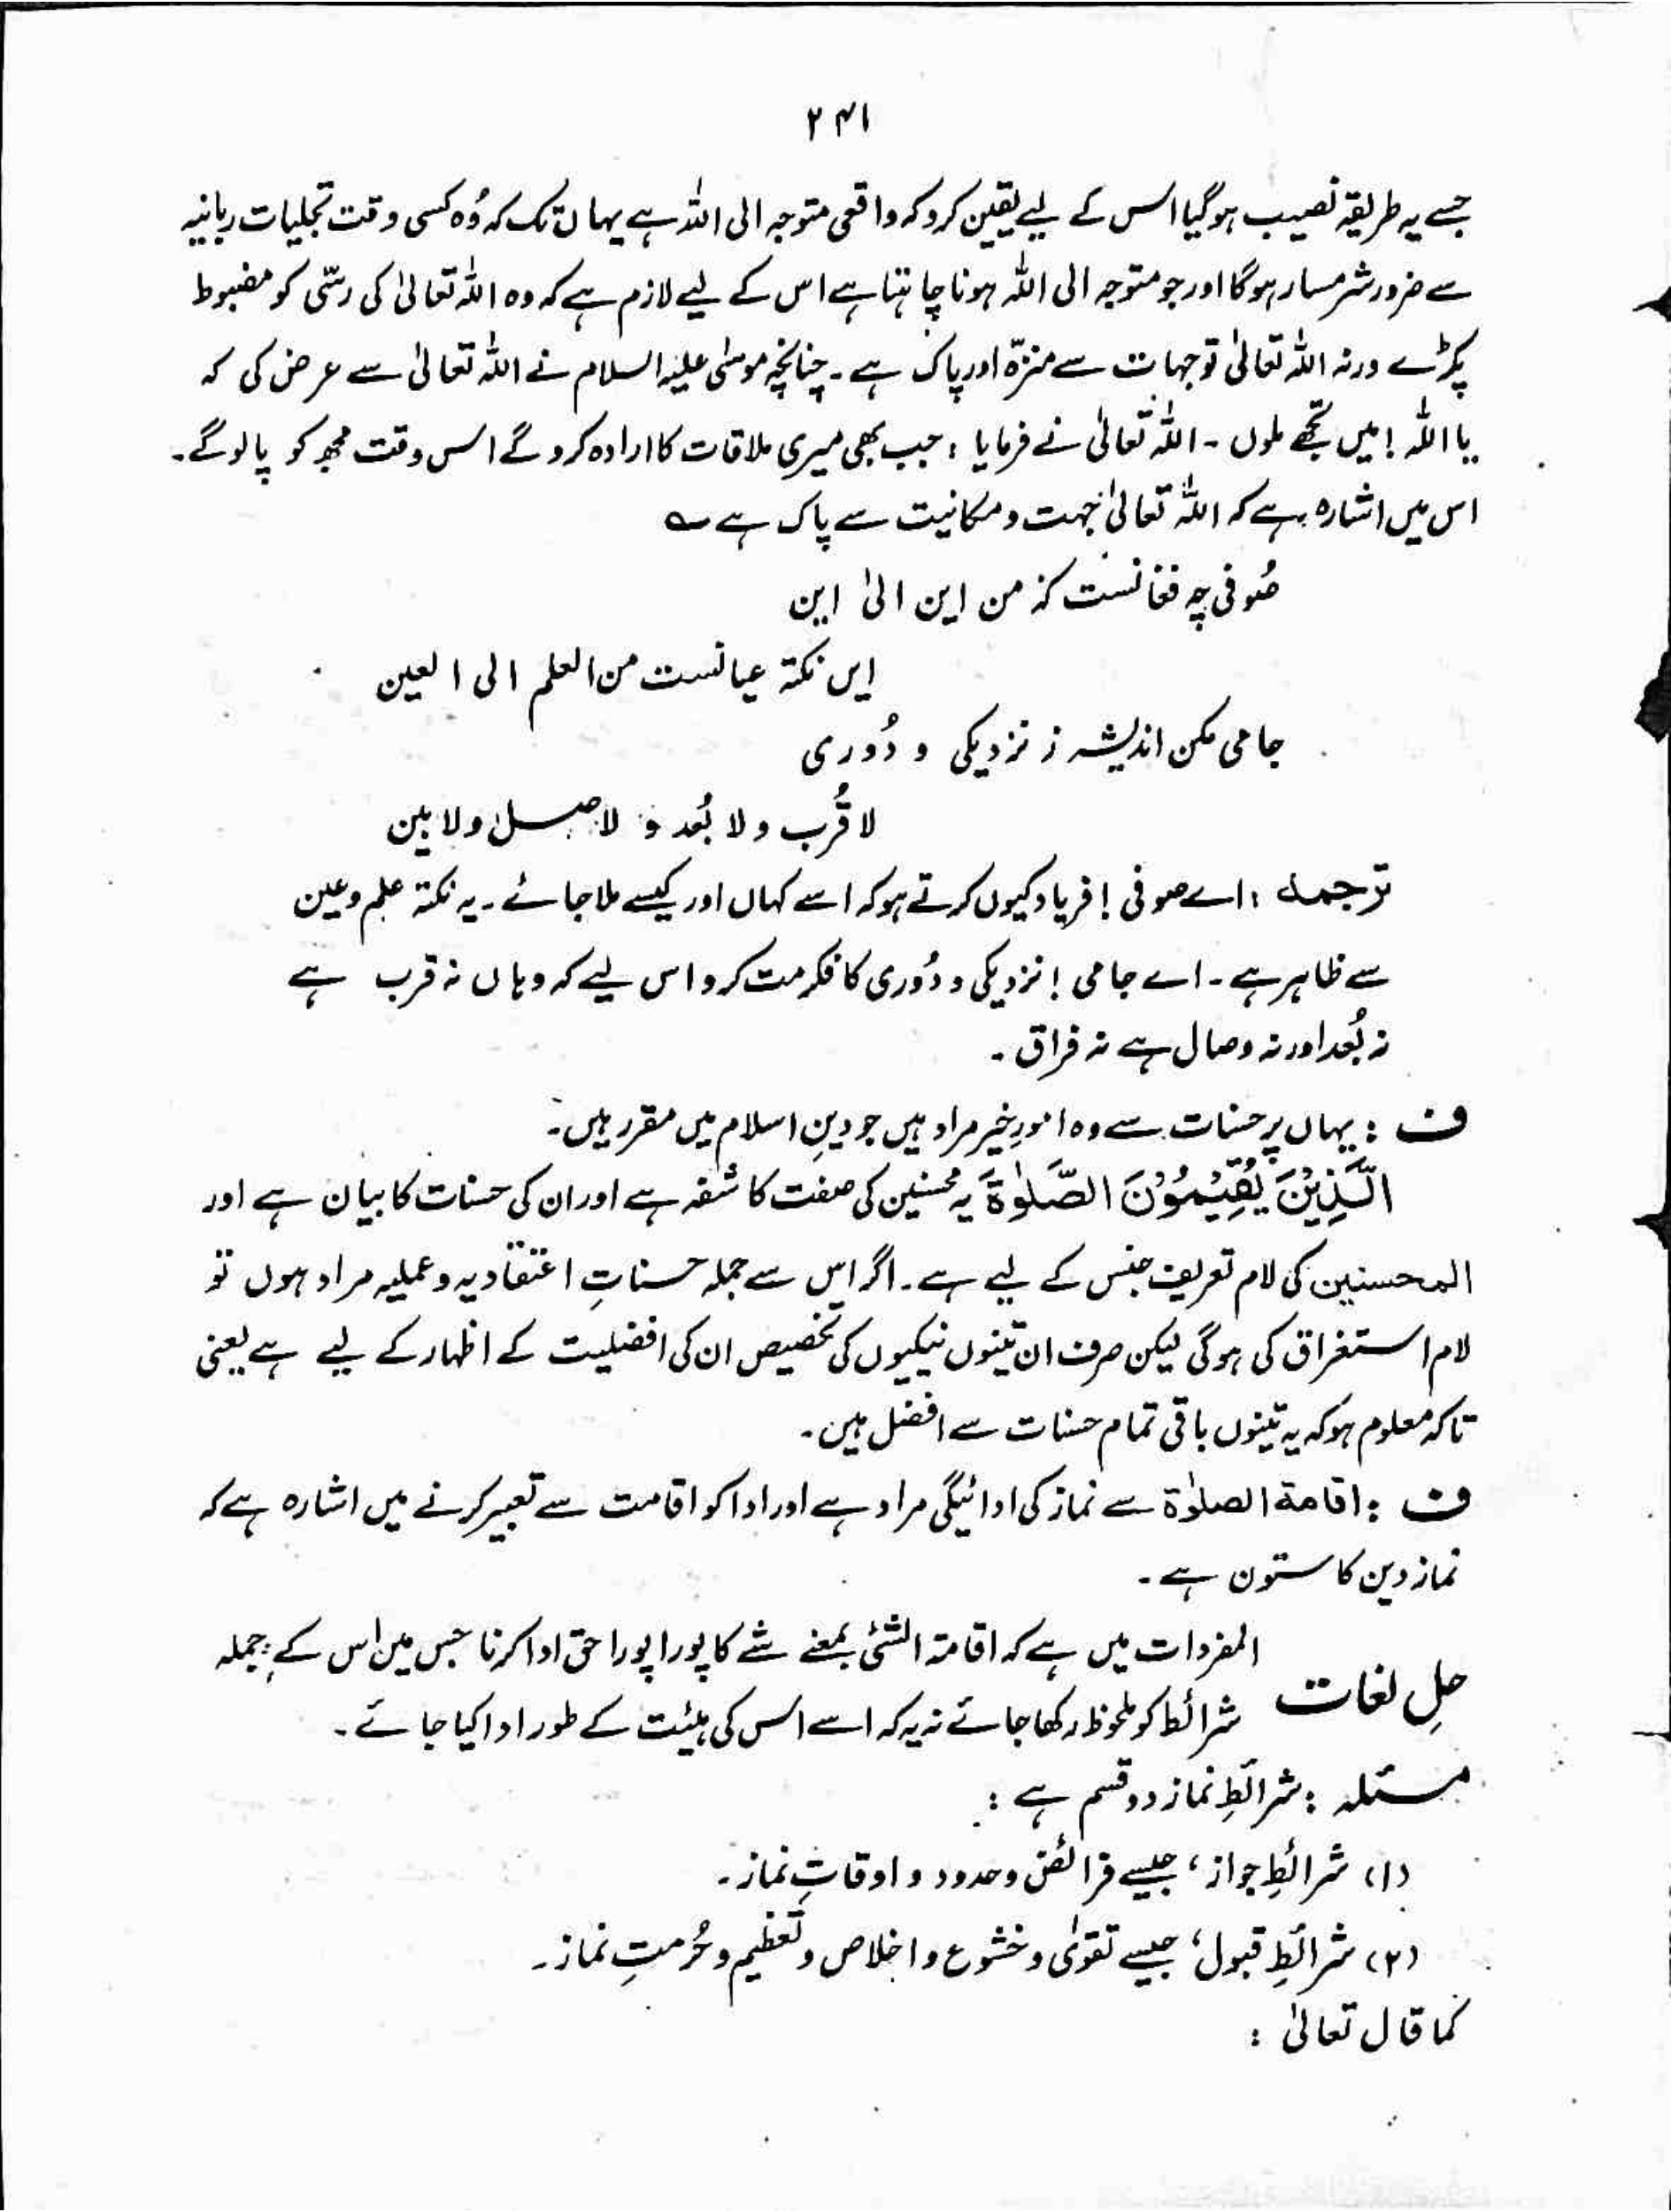 ۲۴۱
جسے یہ طریقہ نصیب ہوگیا اس کے لیے یقین کرو کہ واقعی متوجہ الی اللہ ہے یہاں تک کہ وُہ کسی وقت تجلیات ربانیہ
سے ضرور شرمسار ہوگا اور جو متوجہ الی اللہ ہونا چاہتا ہے اس کے لیے لازم ہے کہ وہ اللہ تعالیٰ کی رسّی کو مضبوط
پکڑے ورنہ اللہ تعالیٰ تو جہات سے منزّہ اور پاک ہے ۔ چنانچہ موسٰی علیہ السلام نے اللہ تعالیٰ سے عرض کی کہ
یا اللہ ! میں تجھے ملوں ۔ اللہ تعالیٰ نے فرمایا : جب بھی میری ملاقات کا ارادہ کرو گے اس وقت مجھ کو پا لو گے۔
اس میں اشارہ ہے کہ اللہ تعالیٰ جہت و مکانیت سے پاک ہے ؎
صُوفی چہ فغانست کہ من این الیٰ این
ایں نکتہ عیانست من العلم الی العین
جامی مکن اندیشہ ز نزدیکی و دُوری
لا قُرب ولا بُعد و لا وصل ولا بین
ترجمہ : اے صوفی ! فریاد کیوں کرتے ہو کہ اسے کہاں اور کیسے ملا جائے ۔ یہ نکتہ علم و عین
سے ظاہر ہے ۔ اے جامی ! نزدیکی و دُوری کا فکر مت کرو اس لیے کہ وہاں نہ قرب ہے
نہ بُعد اور نہ وصال ہے نہ فراق ۔
ف : یہاں پر حسنات سے وہ امورِ خیر مراد ہیں جو دینِ اسلام میں مقرر ہیں۔
الَّذِيْنَ يُقِيْمُوْنَ الصَّلٰوةَ یہ محسنین کی صفت کاشفہ ہے اور ان کی حسنات کا بیان ہے اور
المحسنین کی لام تعریف جنس کے لیے ہے ۔ اگر اس سے جملہ حسناتِ اعتقادیہ و عملیہ مراد ہوں تو
لام استغراق کی ہوگی لیکن صرف ان تینوں نیکیوں کی تخصیص ان کی افضلیت کے اظہار کے لیے ہے یعنی
تاکہ معلوم ہو کہ یہ تینوں باقی تمام حسنات سے افضل ہیں ۔
ف : اقامة الصلوٰة سے نماز کی ادائیگی مراد ہے اور ادا کو اقامت سے تعبیر کرنے میں اشارہ ہے کہ
نماز دین کا ستون ہے ۔
حلِ لغات المفردات میں ہے کہ اقامۃ الشئ بمعنے شے کا پورا پورا حق ادا کرنا جس میں اس کے جملہ
شرائط کو ملحوظ رکھا جائے نہ یہ کہ اسے اس کی ہیئت کے طور ادا کیا جائے ۔
مسئلہ : شرائطِ نماز دو قسم ہے :
(۱) شرائطِ جواز ، جیسے فرائض و حدود و اوقاتِ نماز ۔
(۲) شرائطِ قبول ، جیسے تقوٰی و خشوع و اخلاص و تعظیم و حُرمتِ نماز ۔
کما قال تعالیٰ :